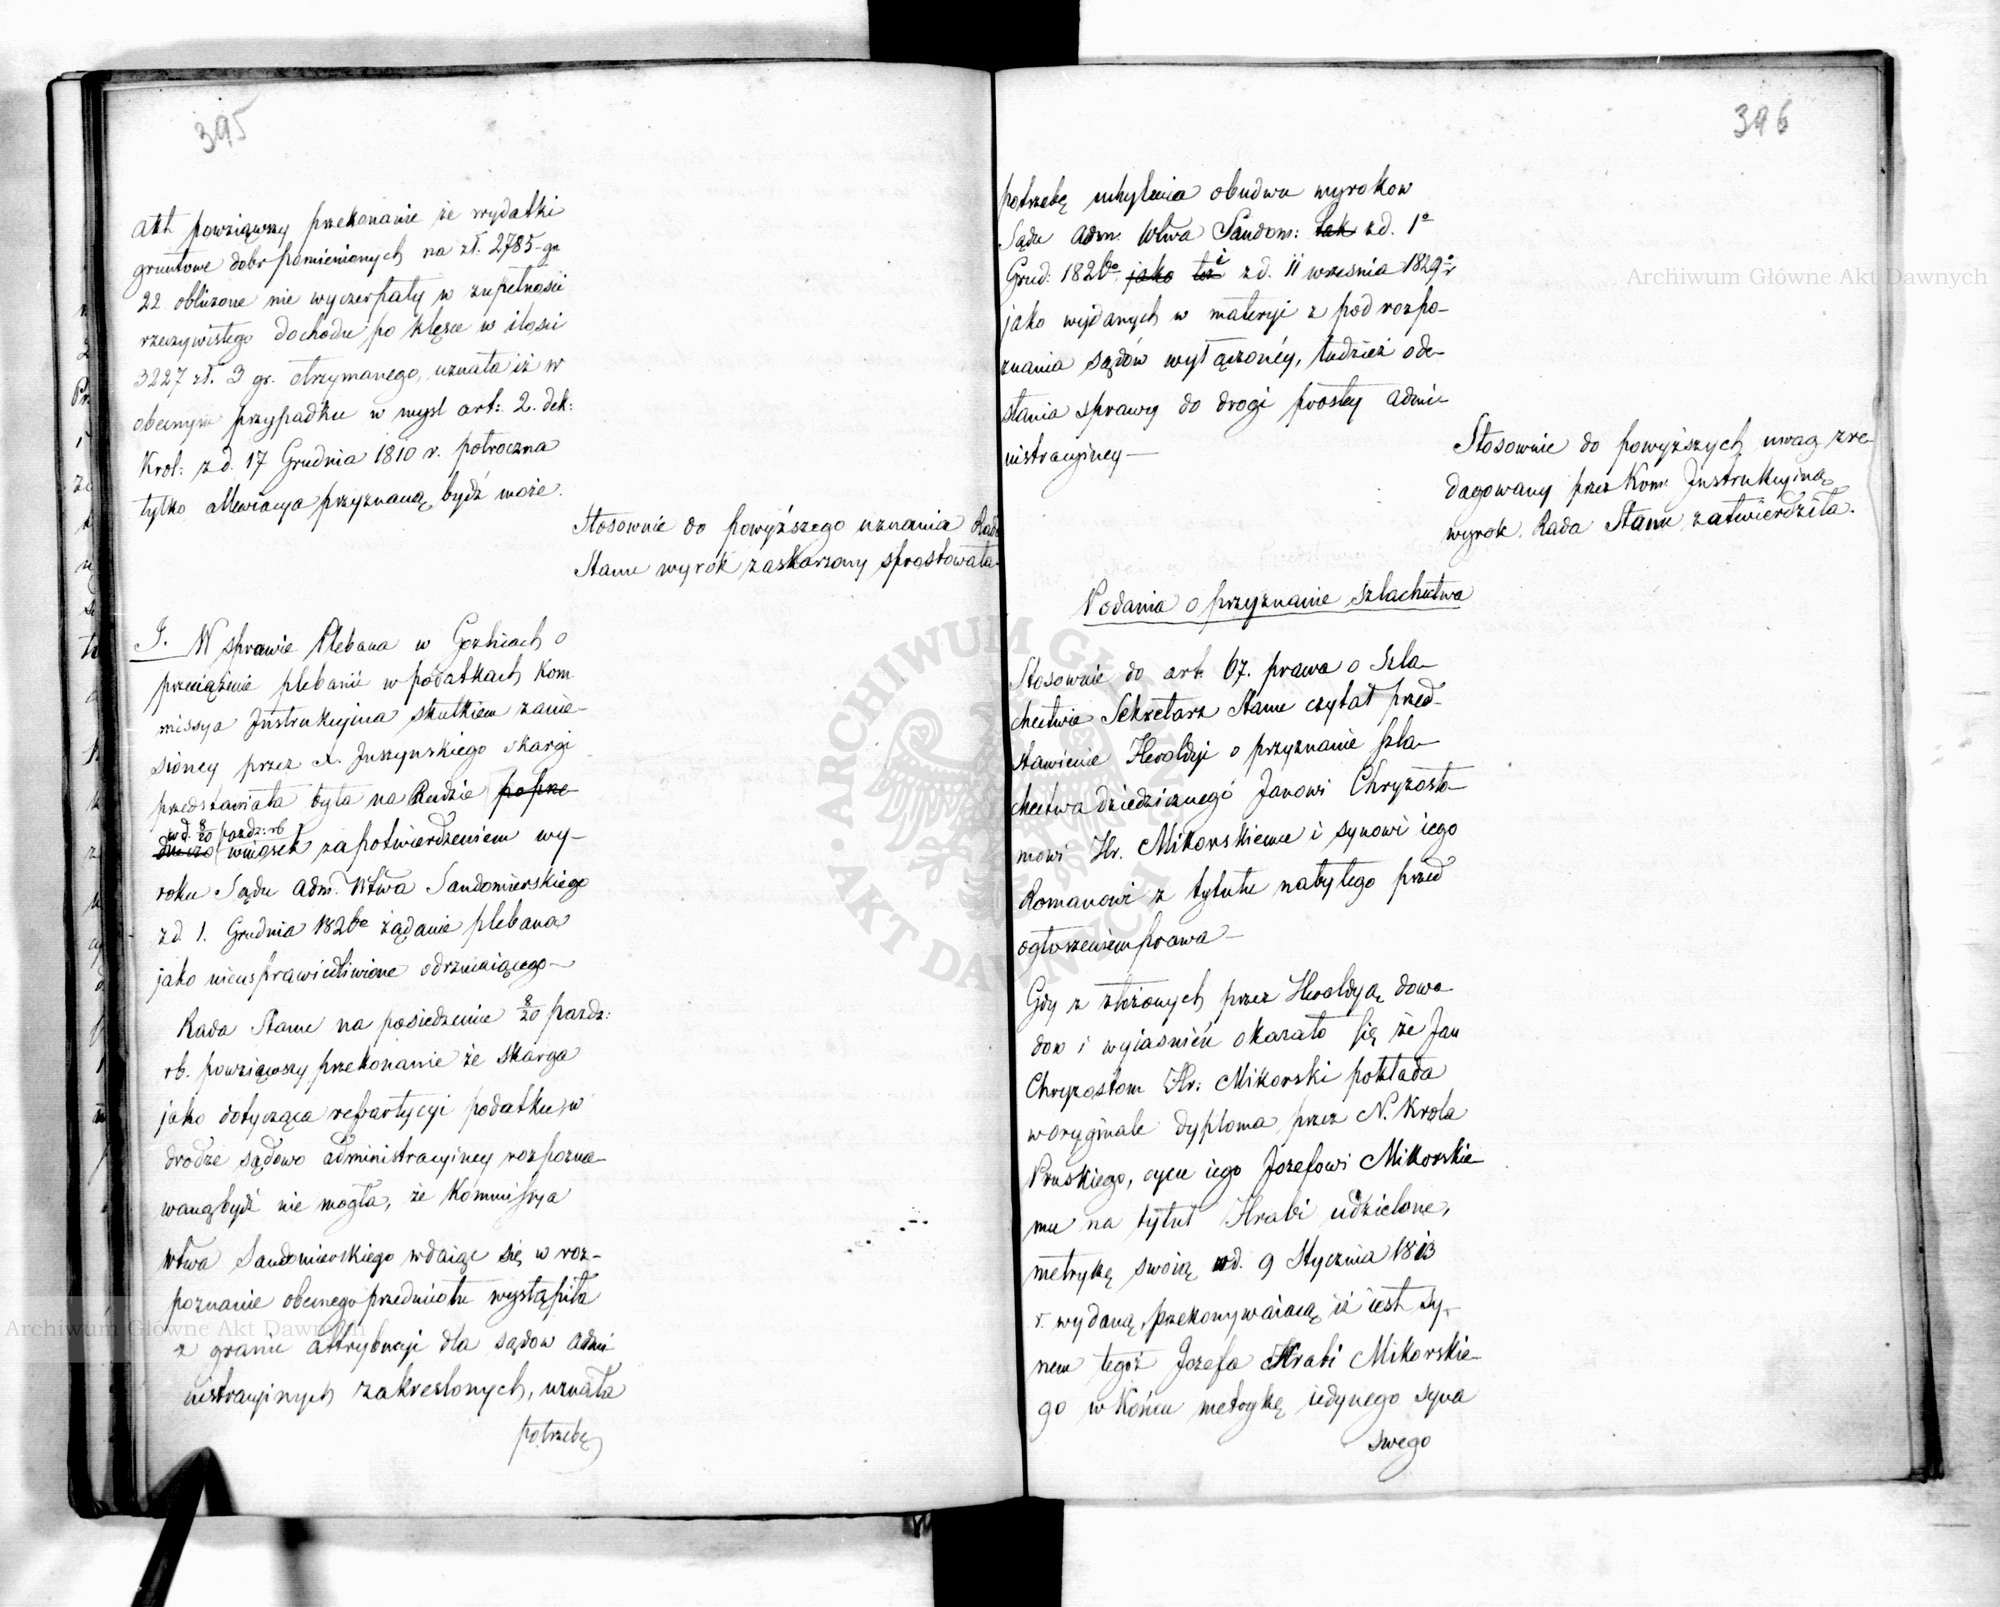 395
akt powziąwszy przekonanie że wydatki
gruntowe dobr pomienionych na zł. 2785 gr
22 obliczone nie wyczerpały w zupełności
rzeczywistego dochodu po klęsce w ilości
3227 zł. 3 gr. otrzymanego, uznała iż w
obecnym przypadku w mysl art: 2. dek:
Krol: z d. 17 Grudnia 1810 r. połroczna
tylko allewiacya przyznaną bydź może.
Stosownie do powyższego uznania Rada
Stanu wyrók zaskarzony sprostowała
J. W sprawie Plebana w Gozlicach o
przeciążenie plebanii w podatkach Kom
missya Instrukcyina skutkiem zanie-
sioney przez X. Juszynskiego skargi
przedstawiała była na Radzie popze
w d. 8/20 pazdz: rb
dniczo wniosek za potwierdzeniem wy-
roku Sądu adm. Wtwa Sandomierskiego
z d. 1. Grudnia 1826o żądanie plebana
jako nieusprawiedliwione odrzucaiącego—
Rada Stanu na posiedzeniu 8/20 pazdz:
rb. powziąwszy przekonanie że skarga
jako dotycząca repartycyi podatku, w
drodze sądowo administracyiney rozpozna-
waną bydź nie mogła, że Kommissya
Wtwa Sandomierskiego wdaiąc się w roz-
poznanie obecnego przedmiotu wystąpiła
z granic attrybucyi dla sądow admi
nistracyinych zakreslonych, uznała
potrzebę
396
potrzebę uchylenia obudwu wyrokow
Sądu adm. Wtwa Sandom: tak z d. 1o
Grud: 1826o jako też i z d. 11 września 1829o r
jako wydanych w materyi z pod rozpo-
znania sądów wyłączonéy, tudzież ode-
słania sprawy do drogi prostey admi-
nistracyiney—
Stosownie do powyższych uwag zre-
dagowany przez Kom: Instrukcyiną
wyrok. Rada Stanu zatwierdziła.
Podania o przyznanie szlachectwa
Stosownie do art. 67. prawa o Szla-
chectwie Sekretarz Stanu czytał przed-
stawienie Heroldyi o przyznanie szla-
chectwa dziedzicznego Janowi Chryzosto-
mowi Hr. Mikorskiemu i synowi iego
Romanowi z tytułu nabytego przed
ogłoszeniem prawa—
Gdy z złożonych przez Heroldyą dowo
dow i wyiaśnień okazało się że Jan
Chryzostom Hr: Mikorski pokłada
w oryginale dyploma przez N. Krola
Pruskiego, oycu iego Jozefowi Mikorskie-
mu na tytuł Hrabi udzielone,
metrykę swoią z d. 9 Stycznia 1813
r. wydaną, przekonywaiącą iż iest sy-
nem tegoż Jozefa Hrabi Mikorskie-
go w końcu metrykę iedynego syna
swego
Archiwum Główne Akt Dawnych
Archiwum Główne Akt Dawnych
ARCHIWUM GŁÓWNE AKT DAWNYCH